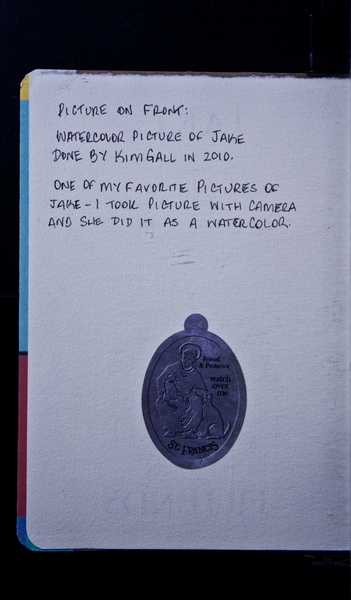 PICTURE ON FRONT:
WATERCOLOR PICTURE OF JAKE
DONE BY KIM GALL IN 2010.
ONE OF MY FAVORITE PICTURES OF
JAKE - I TOOK PICTURE WITH CAMERA
AND SHE DID IT AS A WATERCOLOR.
Friend
& Protector
watch
over
me
ST. FRANCIS